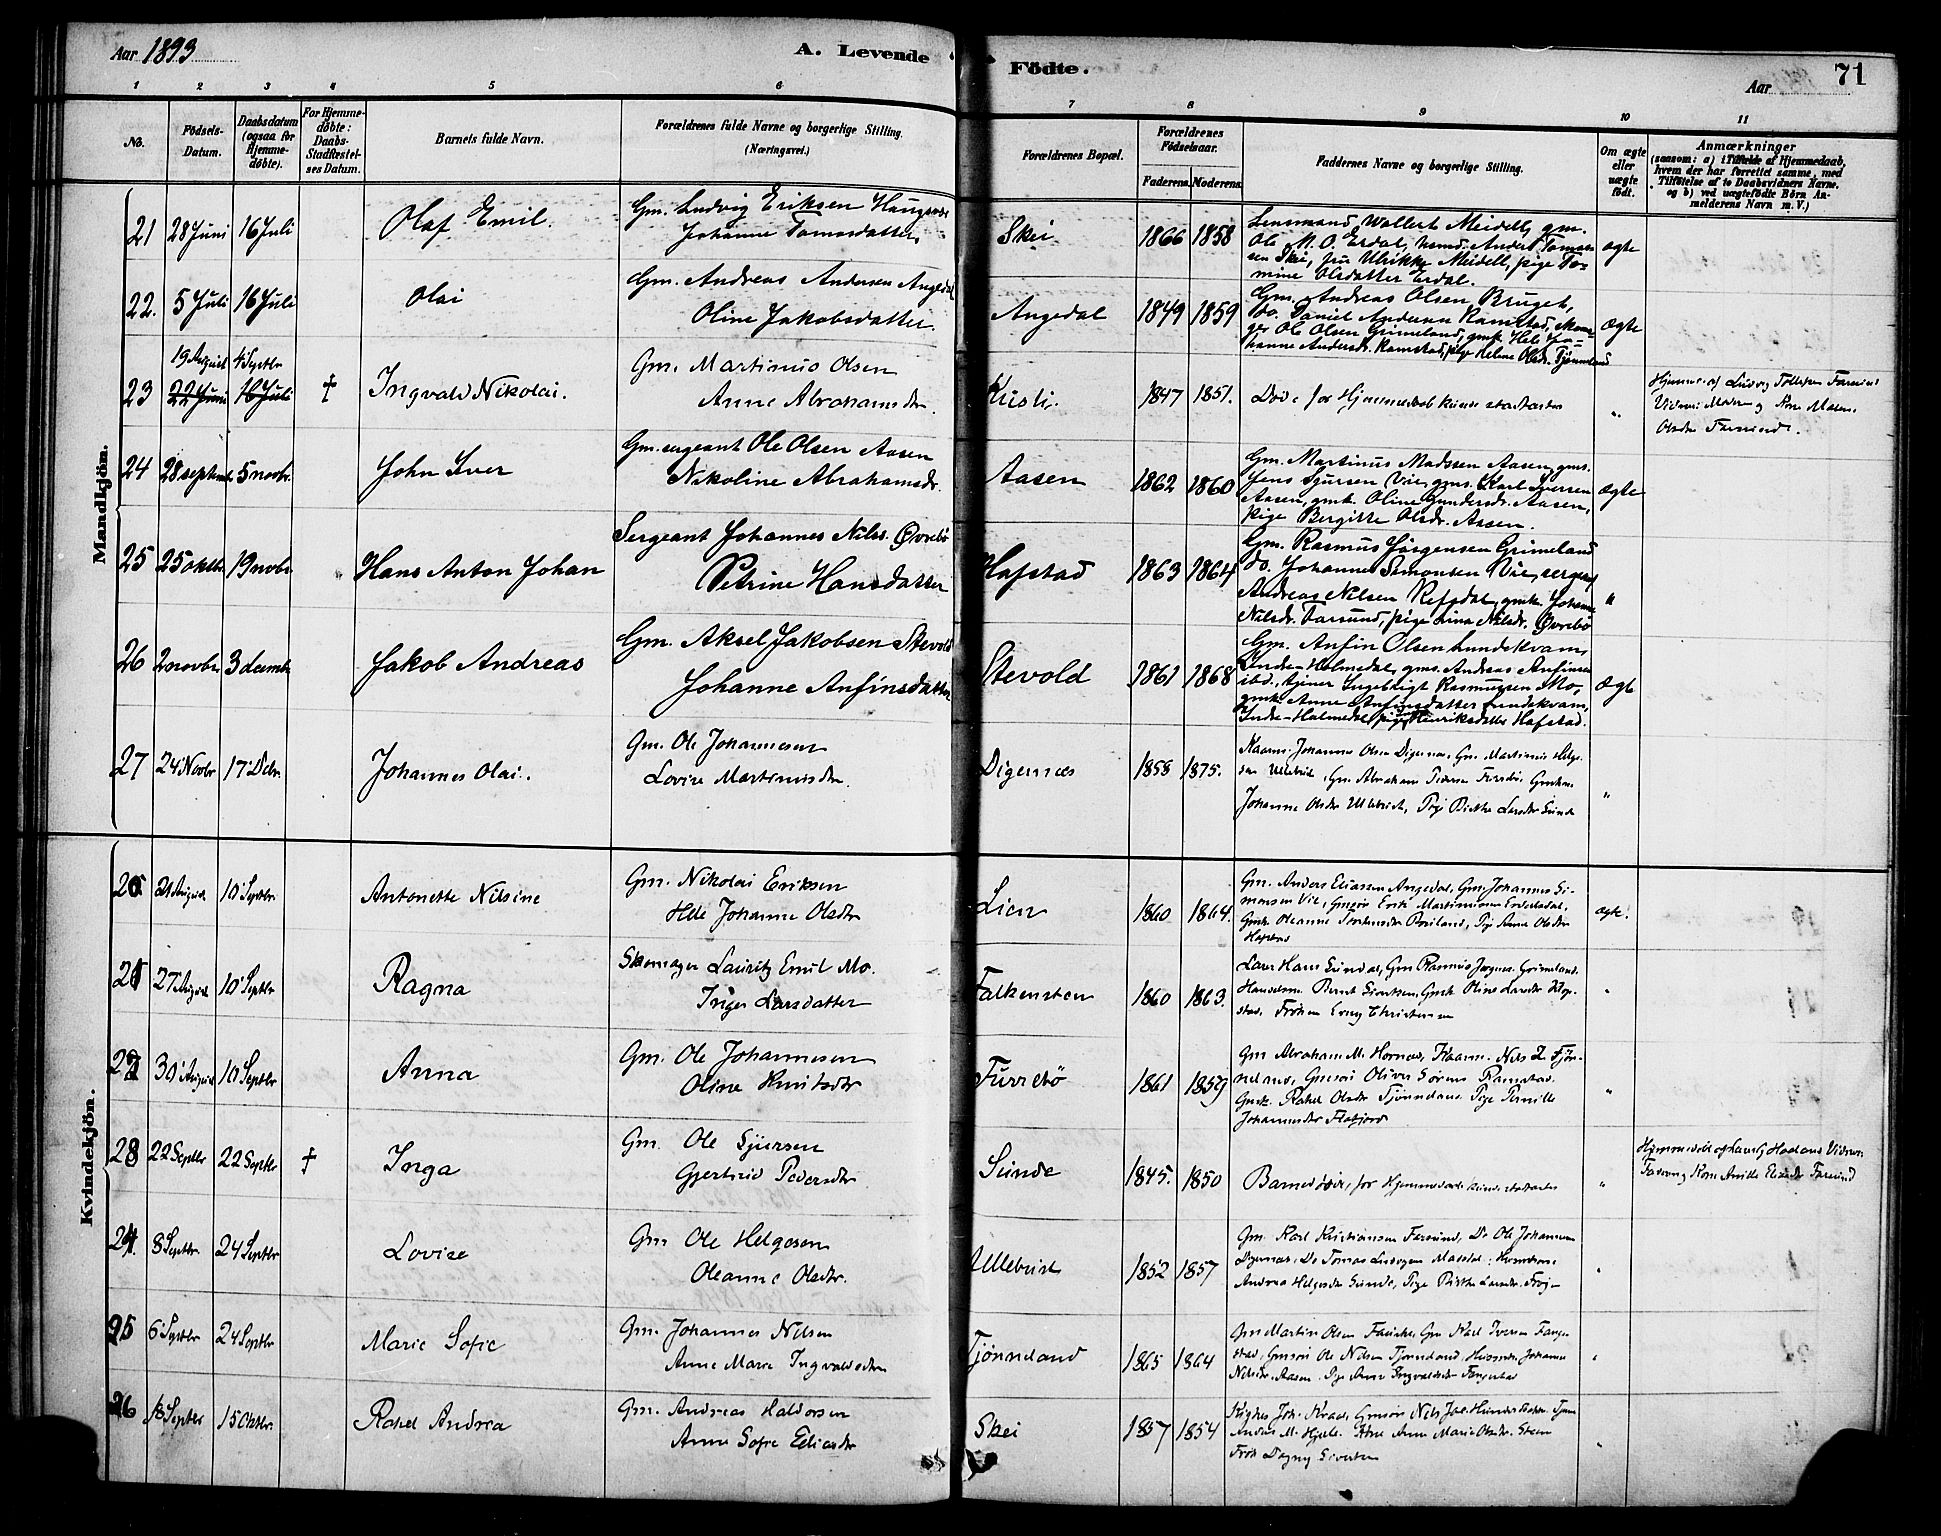 Aar 1893
A. Levende Födte.
Aar
71
1 2 3 4 5 6 7 8 9 10 11
No.
Födsels-
Datum.
Daabsdatum
(ogsaa for
Hjemme-
döbte).
For Hjemme-
döbte:
Daabs-
Stadfestel-
ses Datum.
Barnets fulde Navn.
Forældrenes fulde Navne og borgerlige Stilling.
(Næringsvei.)
Forældrenes Bopæl.
Forældrenes
Födselsaar.
Faderens. Moderens.
Faddernes Navne og borgerlige Stilling.
Om ægte
eller
uægte
födt.
Anmærkninger
(saasom: a) i Tilfælde af Hjemmedaab,
hvem der har forrettet samme, med
Tilföielse af to Daabsvidners Navne.
og b) ved uægtefödte Börn An-
melderens Navn m. V.)
Mandkjön.
21 28 Juni 16 Juli Olaf Emil.
Gm. Ludvig Eriksen
Johanne Tomasdatter.
Skei 1866 1858
Lensmand Wollert Meidell, gm.
Ole M. O. Erdal, Anders Tomas-
sen Skei, fru Ulrikke Meidell, pige To-
mine Olsdatter Erdal.
ægte
22. 5 Juli 16 Juli Olai
Gm. Andreas Andersen Angedal
Oline Jakobsdatter.
Angedal 1849 1859
Gm. Andreas Olsen Bruget,
Do. Daniel Andersen Ramstad,
Ole Olsen Grimeland, gmk. Hele Jo-
hanne Andersd. Ramstad, pige Helene Olsdr. Tjønneland
ægte
19 August 4 Septbr
23 22 Juni 16 Juli † Ingvald Nikolai.
Gm. Martinus Olsen
Anne Abrahamsdr.
1847 1851.
Døde før Hjemmedaab kunde stadfæstes
"
24 28 septembr 5 novbr. John Iver
Gm. sergeant Ole Olsen Aasen
Nikoline Abrahamsdr.
Aasen 1862 1860
Gm. Martinus Madssen Aasen, gms.
Jens Sjursen Vie, gms. Karl Iversen
Aasen, gmk. Oline Gundersdr. Aasen,
pige Bergitte Olsdr. Aasen.
ægte
25 25 oktbr. 19 novbr. Hans Anton Johan
Sergeant Johannes Nils. Øvrebø
Petrine Hansdatter
Hafstad 1863 1864
Gm. Rasmus Jørgensen Grimeland
Do. Johannes Simonsen Vie, sergeant
Andreas Nilsen Refsdal, gmk. Johanne
Nilsdr. Farsund, pige Lina Nilsdr. Øvrebø
"
26 2 novbr. 3 decembr Jakob Andreas
Gm. Aksel Jakobsen Stevold
Johanne Anfinsdatter
Stevold 1861 1868
Gm. Anfin Olsen Lundekvam,
Indre-Holmedal, gms. Andreas Anfinsen
ibd., tjener Ingebrigt Rasmussen Mo,
gmk. Anne Anfinsdatter Lundekvam,
Indre-Holmedal, pige Henriksdatter Hafstad.
ægte
27 24 Novbr 17 Dcbr. Johannes Olai.
Gm. Ole Johannesen
Lovise Martinusdtr.
Digernæs 1858 1875.
Johannes Olsen Digernæs, Gm. Martinus Helge-
sen Ullebust, Gm. Abraham Pedersen Furrebø,
Johanne Olsdtr Ullebust, Pige Birthe Larsdtr Sunde
"
Kvindekjön.
20. 21 August 10 Septbr. Antonette Nilsine
Gm. Nikolai Eriksen
Hele Johanne Olsdtr
Lien 1860 1864.
Gm. Anders Eliassen Angedal, Gm. Johannes Si-
monsen Vie, Gmsøn Erik Martinusen
Gmk. Oleanne Pige Anne Olsdtr
Hafstad
ægte.
21 27 August 10 Septbr Ragna
Skomager Lauritz Emil Mo.
Inger Larsdatter
Falkensten 1860 1863.
Lærer Hans Sunde, Gm Rasmus Jørgens. Grimeland.
Handelsm. Bernt Sivertsen, Gmk Oline Larsdtr
Frøken Christensen
"
22 30 August 10 Septbr Anna
Gm. Ole Johannesen
Oline Knutsdtr
Furrebø 1861 1859
Gm Abraham M. Hornæs, Nils L. Tjøn-
neland, Gmsøn Oliver Sørens. Ramstad.
Gmk. Rakel Olsdtr Tjønneland. Pige Pernille
Johannesdtr
"
23 22 Septbr 22 Septbr † Inga
Gm. Ole Sjursen
Gjertrud Pedersdtr
Sunde 1845. 1850
Barnet døde, før Hjemmedaab kunde stadfæstes
"
24. 8 Septbr. 24 Septbr Lovise
Gm Ole Helgesen
Oleanne Olsdtr.
Ullebust 1852 1857
Gm. Karl Kristiansen Farsund, Do Ole Johannesen
Digernæs. Do Tomas
Andrea Helgesdtr Sunde, Pige Birthe Larsdtr.
"
25 6 Septbr 24 Septbr Marie Sofie
Gm. Johannes Nilsen
Anne Marie Ingvaldsdtr
Tjønneland 1865 1864
Gm Martin Olsen Gm Karl Iversen Fange-
stad, Gmsøn Ole Nilsen Tjønneland, Johanne
Nilsdtr. Aasen. Pige Anne Ingvaldsdtr Fangestad
"
26 18 Septbr 15 Oktbr. Rakel Andrea
Gm. Andreas Haldorsen
Anne Sofie
Skei 1857 1854
Joh. Gmsøn Nils
Anders M. Hjelle. Anne Marie Olsdtr.
Frøk Dagny Sivertsen
"